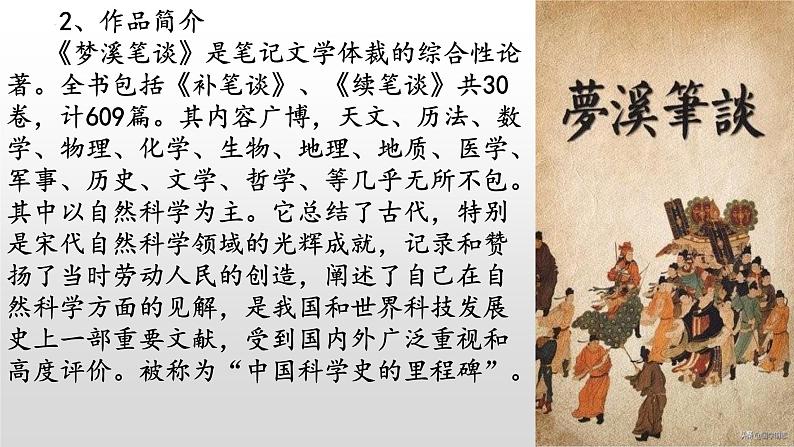 2、作品简介
《梦溪笔谈》是笔记文学体裁的综合性论
著。全书包括《补笔谈》、《续笔谈》共30
卷，计609篇。其内容广博，天文、历法、数
学、物理、化学、生物、地理、地质、医学、
军事、历史、文学、哲学、等几乎无所不包。
其中以自然科学为主。它总结了古代，特别
是宋代自然科学领域的光辉成就，记录和赞
扬了当时劳动人民的创造，阐述了自己在自
然科学方面的见解，是我国和世界科技发展
史上一部重要文献，受到国内外广泛重视和
高度评价。被称为“中国科学史的里程碑”。
夢溪筆談